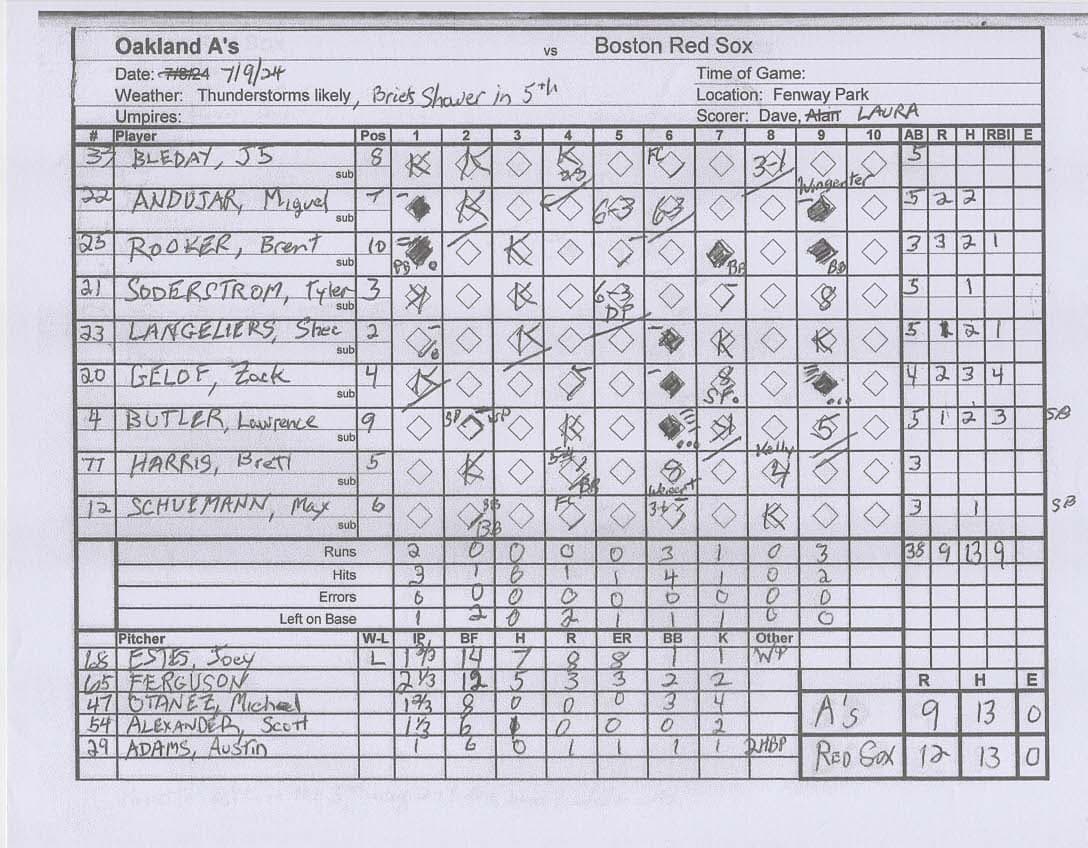 Oakland A's vs Boston Red Sox
Date: 7/8/24 7/9/24 Time of Game:
Weather: Thunderstorms likely, Brief Shower in 5th Location: Fenway Park
Umpires: Scorer: Dave, Alan LAURA
# Player Pos 1 2 3 4 5 6 7 8 9 10 AB R H RBI E
33 BLEDAY, JJ 8 K K K FC 3-1 5
sub Wingenter
22 ANDUJAR, Miguel 7 K 6-3 63 5 2 2
sub
25 ROOKER, Brent 10 K BB BB 3 3 2 1
sub
21 SODERSTROM, Tyler 3 K K 6-3 DP 7 8 5 1
sub
23 LANGELIERS, Shea 2 K K K 5 1 2 1
sub
20 GELOF, Zack 4 K 8 SF 4 2 3 4
sub
4 BUTLER, Lawrence 9 K K 5 5 1 2 3 SB
sub Kelly
77 HARRIS, Brett 5 K BB 8 4 3
sub
12 SCHUEMANN, Max 6 SB BB FC K 3 1 SB
sub
Runs 2 0 0 0 0 3 1 0 3 38 9 13 9
Hits 3 1 0 1 1 4 1 0 2
Errors 0 0 0 0 0 0 0 0 0
Left on Base 1 2 0 2 1 1 1 0 0
Pitcher W-L IP BF H R ER BB K Other
68 ESTES, Joey L 1 2/3 14 7 8 8 1 1 WP
65 FERGUSON 2 1/3 12 5 3 3 2 2
47 OTANEZ, Michael 1 2/3 8 0 0 0 3 4
54 ALEXANDER, Scott 1 1/3 6 1 0 0 0 2
29 ADAMS, Austin 1 6 0 1 1 1 1 2HBP
R H E
A's 9 13 0
RED SOX 12 13 0